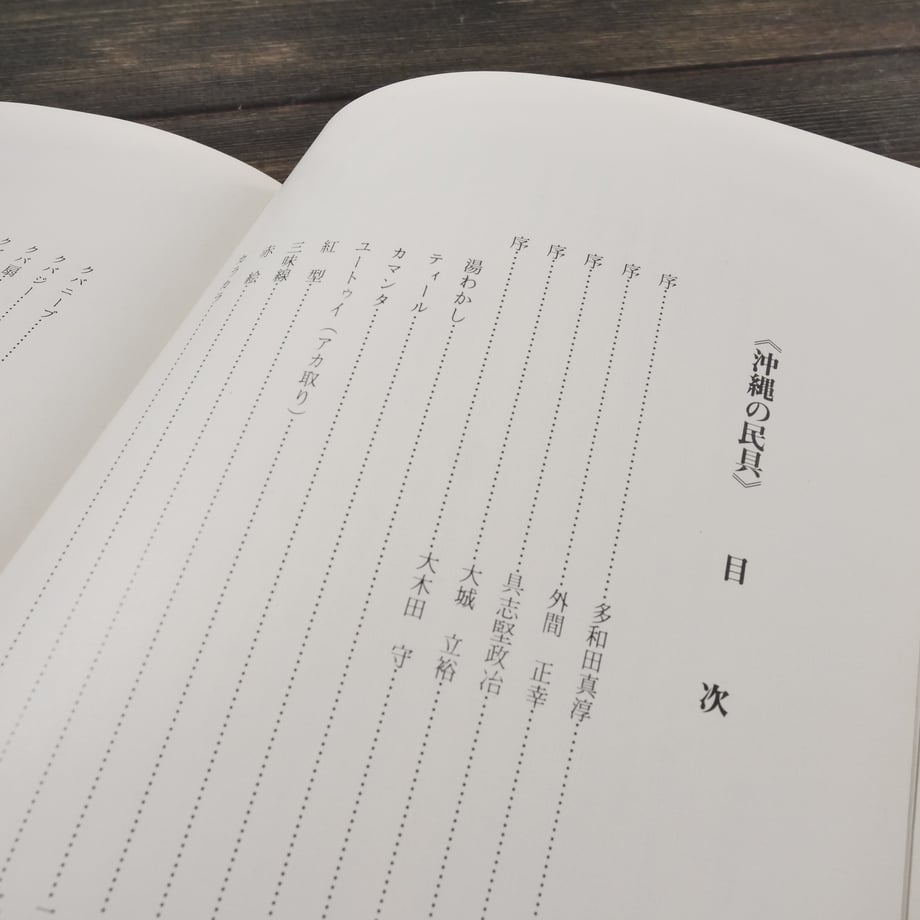 《沖縄の民具》 目 次
序 多和田真淳
序 外間 正幸
序 具志堅政冶
序 大城 立裕
序 大木田 守
湯わかし
ティール
カマンタ
ユートゥイ(アカ取り)
紅 型
三味線
赤 絵
カラカラ
クバニーブ
クバジー
クバ扇